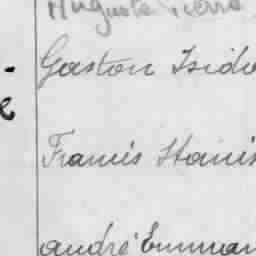 Auguste Pierre
Gaston Isido
Francis Stanis
André Emman